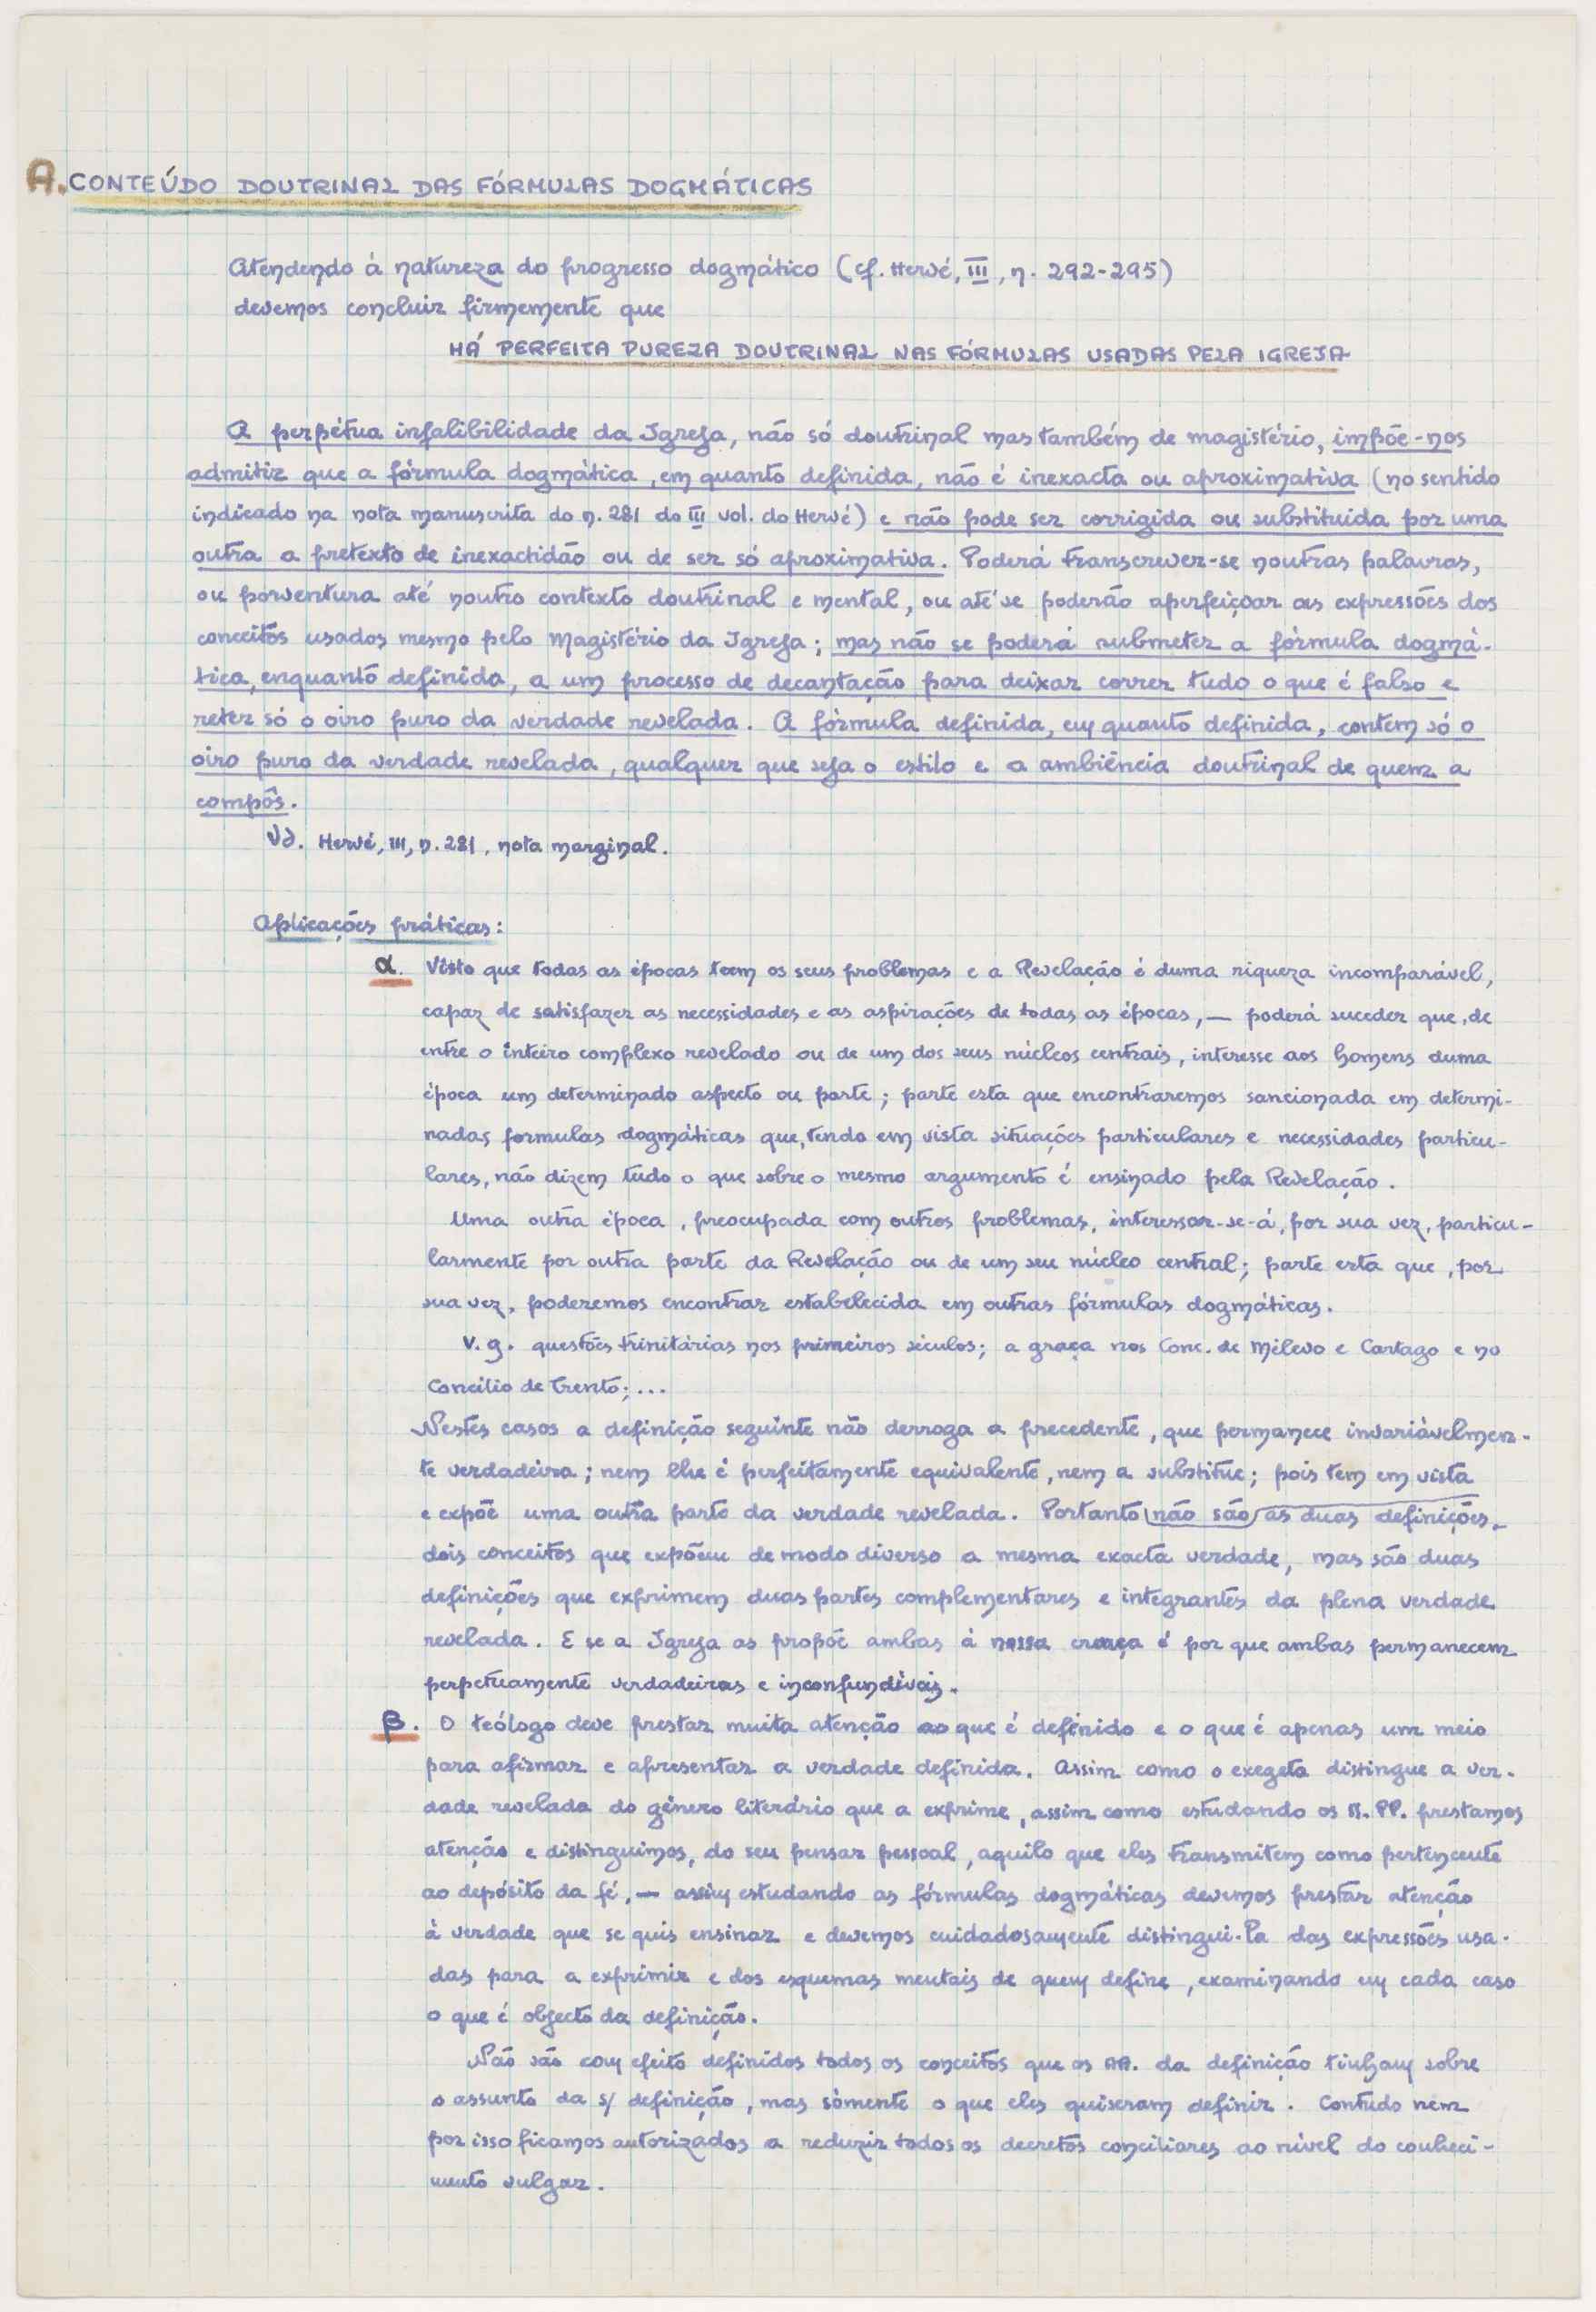 A. CONTEÚDO DOUTRINAL DAS FÓRMULAS DOGMÁTICAS
Atendendo à natureza do progresso dogmático (cf. Hervé, III, n. 292-295)
devemos concluir firmemente que
HÁ PERFEITA PUREZA DOUTRINAL NAS FÓRMULAS USADAS PELA IGREJA
A perpétua infalibilidade da Igreja, não só doutrinal mas também de magistério, impõe-nos
admitir que a fórmula dogmática, em quanto definida, não é inexacta ou aproximativa (no sentido
indicado na nota manuscrita do n. 281 do III vol. do Hervé) e não pode ser corrigida ou substituída por uma
outra a pretexto de inexactidão ou de ser só aproximativa. Poderá transcrever-se noutras palavras,
ou porventura até noutro contexto doutrinal e mental, ou até se poderão aperfeiçoar as expressões dos
conceitos usados mesmo pelo Magistério da Igreja; mas não se poderá submeter a fórmula dogmá-
tica, enquanto definida, a um processo de decantação para deixar correr tudo o que é falso e
reter só o oiro puro da verdade revelada. A fórmula definida, em quanto definida, contem só o
oiro puro da verdade revelada, qualquer que seja o estilo e a ambiência doutrinal de quem a
compôs.
Vd. Hervé, III, n. 281, nota marginal.
Aplicações práticas:
α. Visto que todas as épocas teem os seus problemas e a Revelação é duma riqueza incomparável,
capaz de satisfazer as necessidades e as aspirações de todas as épocas, — poderá suceder que, de
entre o inteiro complexo revelado ou de um dos seus núcleos centrais, interesse aos homens duma
época um determinado aspecto ou parte; parte esta que encontraremos sancionada em determi-
nadas formulas dogmáticas que, tendo em vista situações particulares e necessidades particu-
lares, não dizem tudo o que sobre o mesmo argumento é ensinado pela Revelação.
Uma outra época, preocupada com outros problemas, interessar-se-á, por sua vez, particu-
larmente por outra parte da Revelação ou de um seu núcleo central; parte esta que, por
sua vez, poderemos encontrar estabelecida em outras fórmulas dogmáticas.
v. g. questões trinitárias nos primeiros séculos; a graça nos Conc. de Milevo e Cartago e no
Concílio de Trento; ...
Nestes casos a definição seguinte não derroga a precedente, que permanece invariàvelmen-
te verdadeira; nem lhe é perfeitamente equivalente, nem a substitue; pois tem em vista
e expõe uma outra parte da verdade revelada. Portanto não são as duas definições
dois conceitos que expõem de modo diverso a mesma exacta verdade, mas são duas
definições que exprimem duas partes complementares e integrantes da plena verdade
revelada. E se a Igreja as propõe ambas à nossa crença é por que ambas permanecem
perpetuamente verdadeiras e inconfundíveis.
β. O teólogo deve prestar muita atenção ao que é definido e o que é apenas um meio
para afirmar e apresentar a verdade definida. Assim como o exegeta distingue a ver-
dade revelada do género literário que a exprime, assim como estudando os SS. PP. prestamos
atenção e distinguimos, do seu pensar pessoal, aquilo que eles transmitem como pertencente
ao depósito da fé, — assim estudando as fórmulas dogmáticas devemos prestar atenção
à verdade que se quis ensinar e devemos cuidadosamente distingui-la das expressões usa-
das para a exprimir e dos esquemas mentais de quem define, examinando em cada caso
o que é objecto da definição.
Não são com efeito definidos todos os conceitos que os AA. da definição tinham sobre
o assunto da s/ definição, mas sòmente o que eles quiseram definir. Contudo nem
por isso ficamos autorizados a reduzir todos os decretos conciliares ao nível do conheci-
mento vulgar.